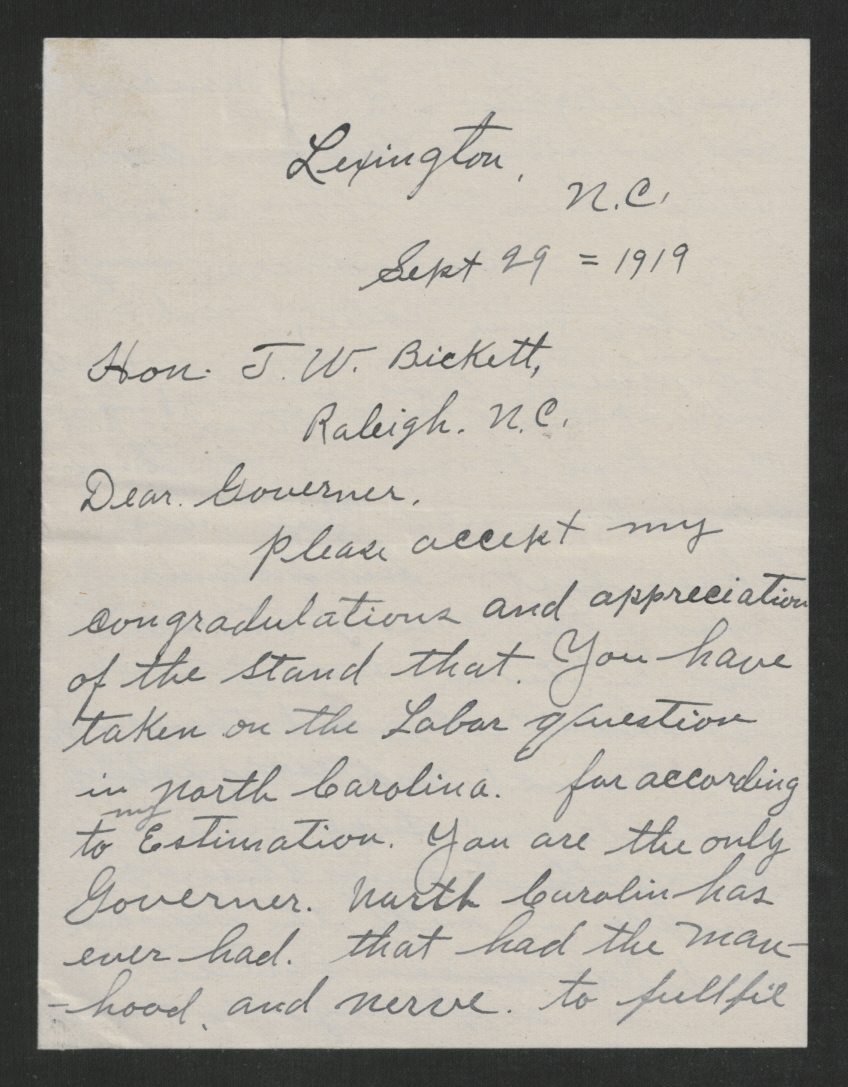 Lexington,
N.C.
Sept 29 = 1919
Hon. T. W. Bickett,
Raleigh. N.C.
Dear. Governer.
please accept my
congradulations and appreciation
of the stand that. You have
taken on the Labor question
in North Carolina. for according
to my Estimation. You are the only
Governer. North Carolin has
ever had. that had the man-
-hood. and nerve. to fullfil